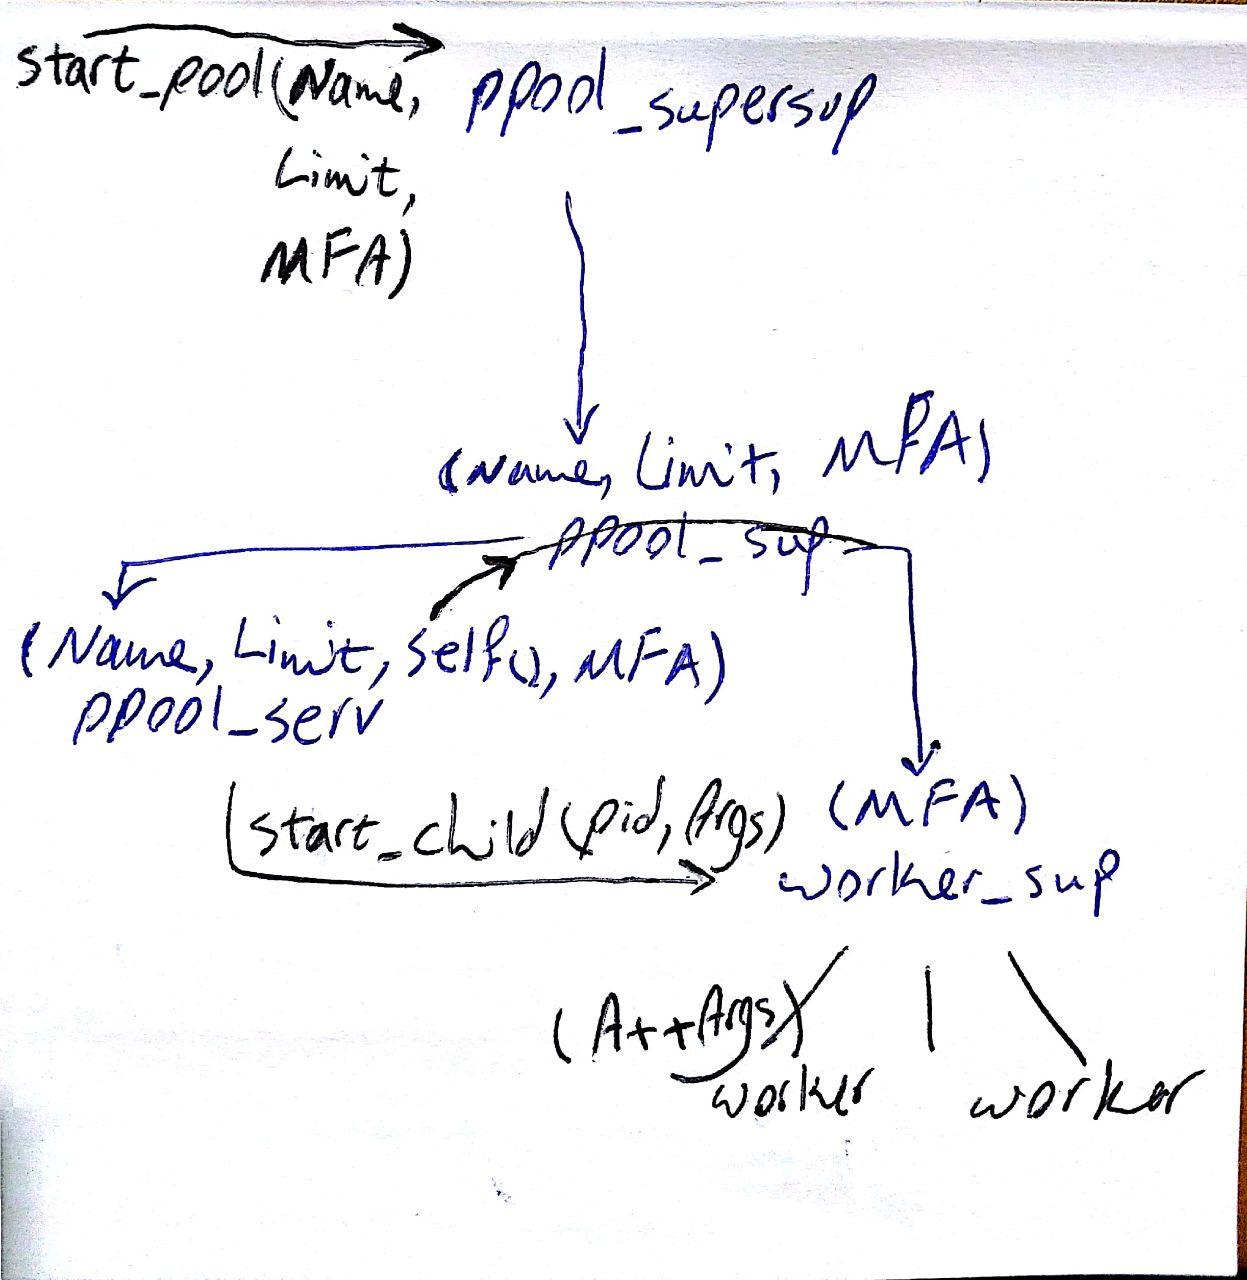 start_pool(Name,
Limit,
MFA)
ppool_supersup
(Name, Limit, MFA)
ppool_sup
(Name, Limit, self(), MFA)
ppool_serv
start_child(pid, Args)
(MFA)
worker_sup
(A++Args)
worker
worker